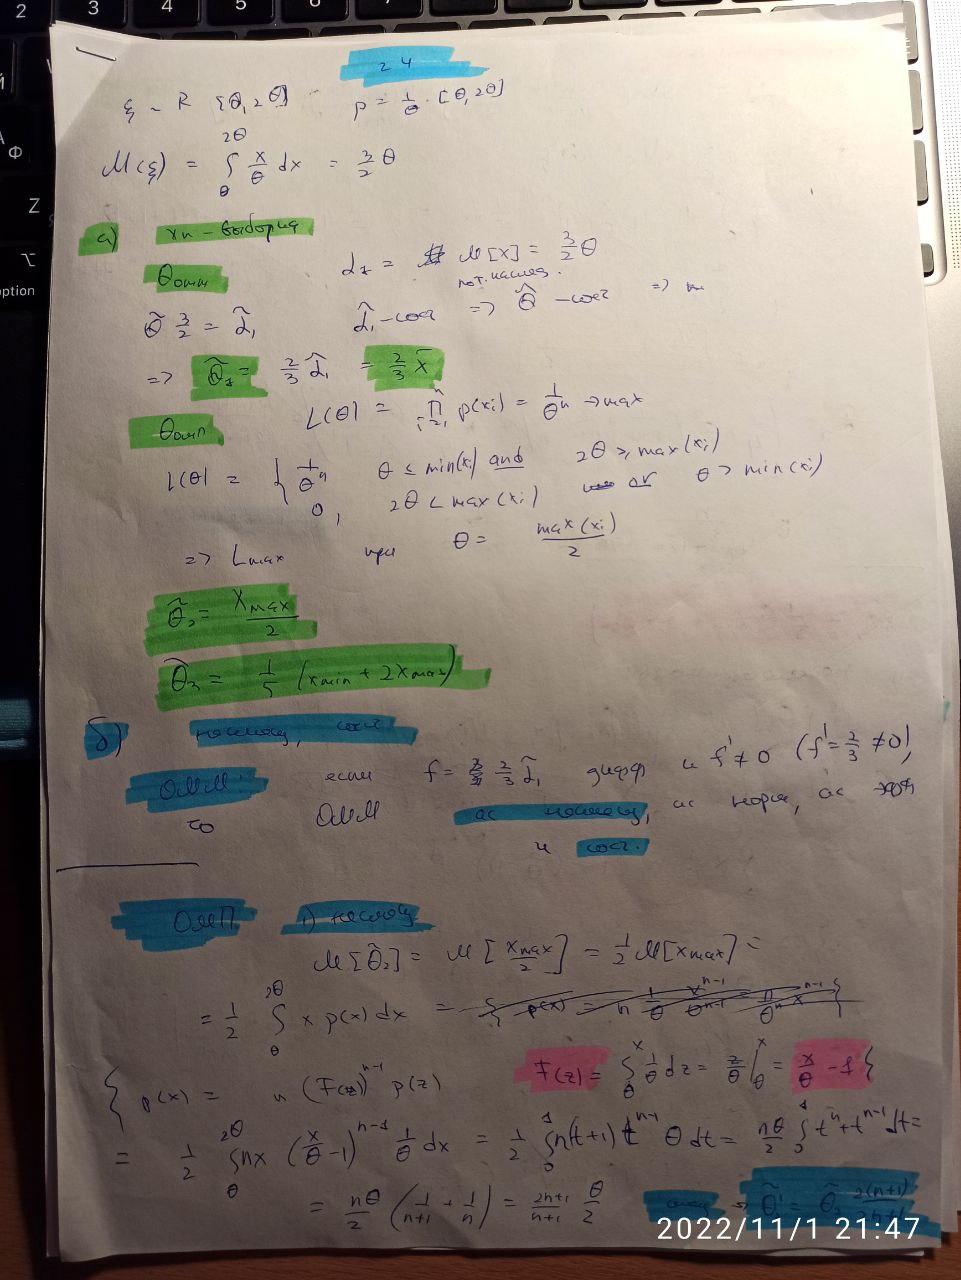 24
ξ ~ R [θ, 2θ]   p = 1/θ · [θ, 2θ]
M(ξ) = ∫_θ^{2θ} x/θ dx = 3/2 θ
а) xn - выборка
θомм   α₁ = M[x] = 3/2 θ
θ̃ 3/2 = α̃₁   α̂₁ - сост => θ̂ - сост =>
=> θ̃₁ = 2/3 α̂₁ = 2/3 x̄
θомп   L(θ) = ∏_{i=1}^n p(xᵢ) = 1/θⁿ → max
L(θ) = { 1/θⁿ   θ ≤ min(xᵢ) and 2θ ≥ max(xᵢ)
0,   2θ < max(xᵢ) or θ > min(xᵢ)
=> Lmax при θ = max(xᵢ)/2
θ̃₂ = Xmax/2
θ̃₃ = 1/5 (xmin + 2xmax)
б) несмещ, сост
ОММ: если f = 2/3 α̃₁ дифф и f' ≠ 0 (f' = 2/3 ≠ 0),
то ОММ ас несмещ, ас норм, ас эфф
и сост.
ОМП 1) несмещ
M[θ̃₂] = M[xmax/2] = 1/2 M[xmax] =
= 1/2 ∫_θ^{2θ} x p(x) dx =
{ p(x) = n (F(z))^{n-1} p(z)   F(z) = ∫_θ^x 1/θ dz = z/θ |_θ^x = x/θ - 1 }
= 1/2 ∫_θ^{2θ} nx (x/θ - 1)^{n-1} 1/θ dx = 1/2 ∫_0^1 n(t+1) t^{n-1} θ dt = nθ/2 ∫_0^1 tⁿ + t^{n-1} dt =
= nθ/2 (1/(n+1) + 1/n) = (2n+1)/(n+1) θ/2   => θ̃₂' = θ̃₂ 2(n+1)/(2n+1)
2022/11/1 21:47